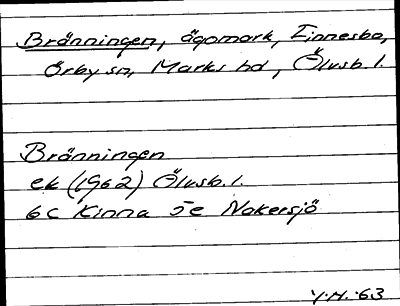 Bränningen, ägomark, Finnesbo,
Örby sn, Marks hd, Älvsb. l.
Bränningen
ek (1962) Älvsb. l.
6c Kinna 5e Nakersjö
Y.H. 63